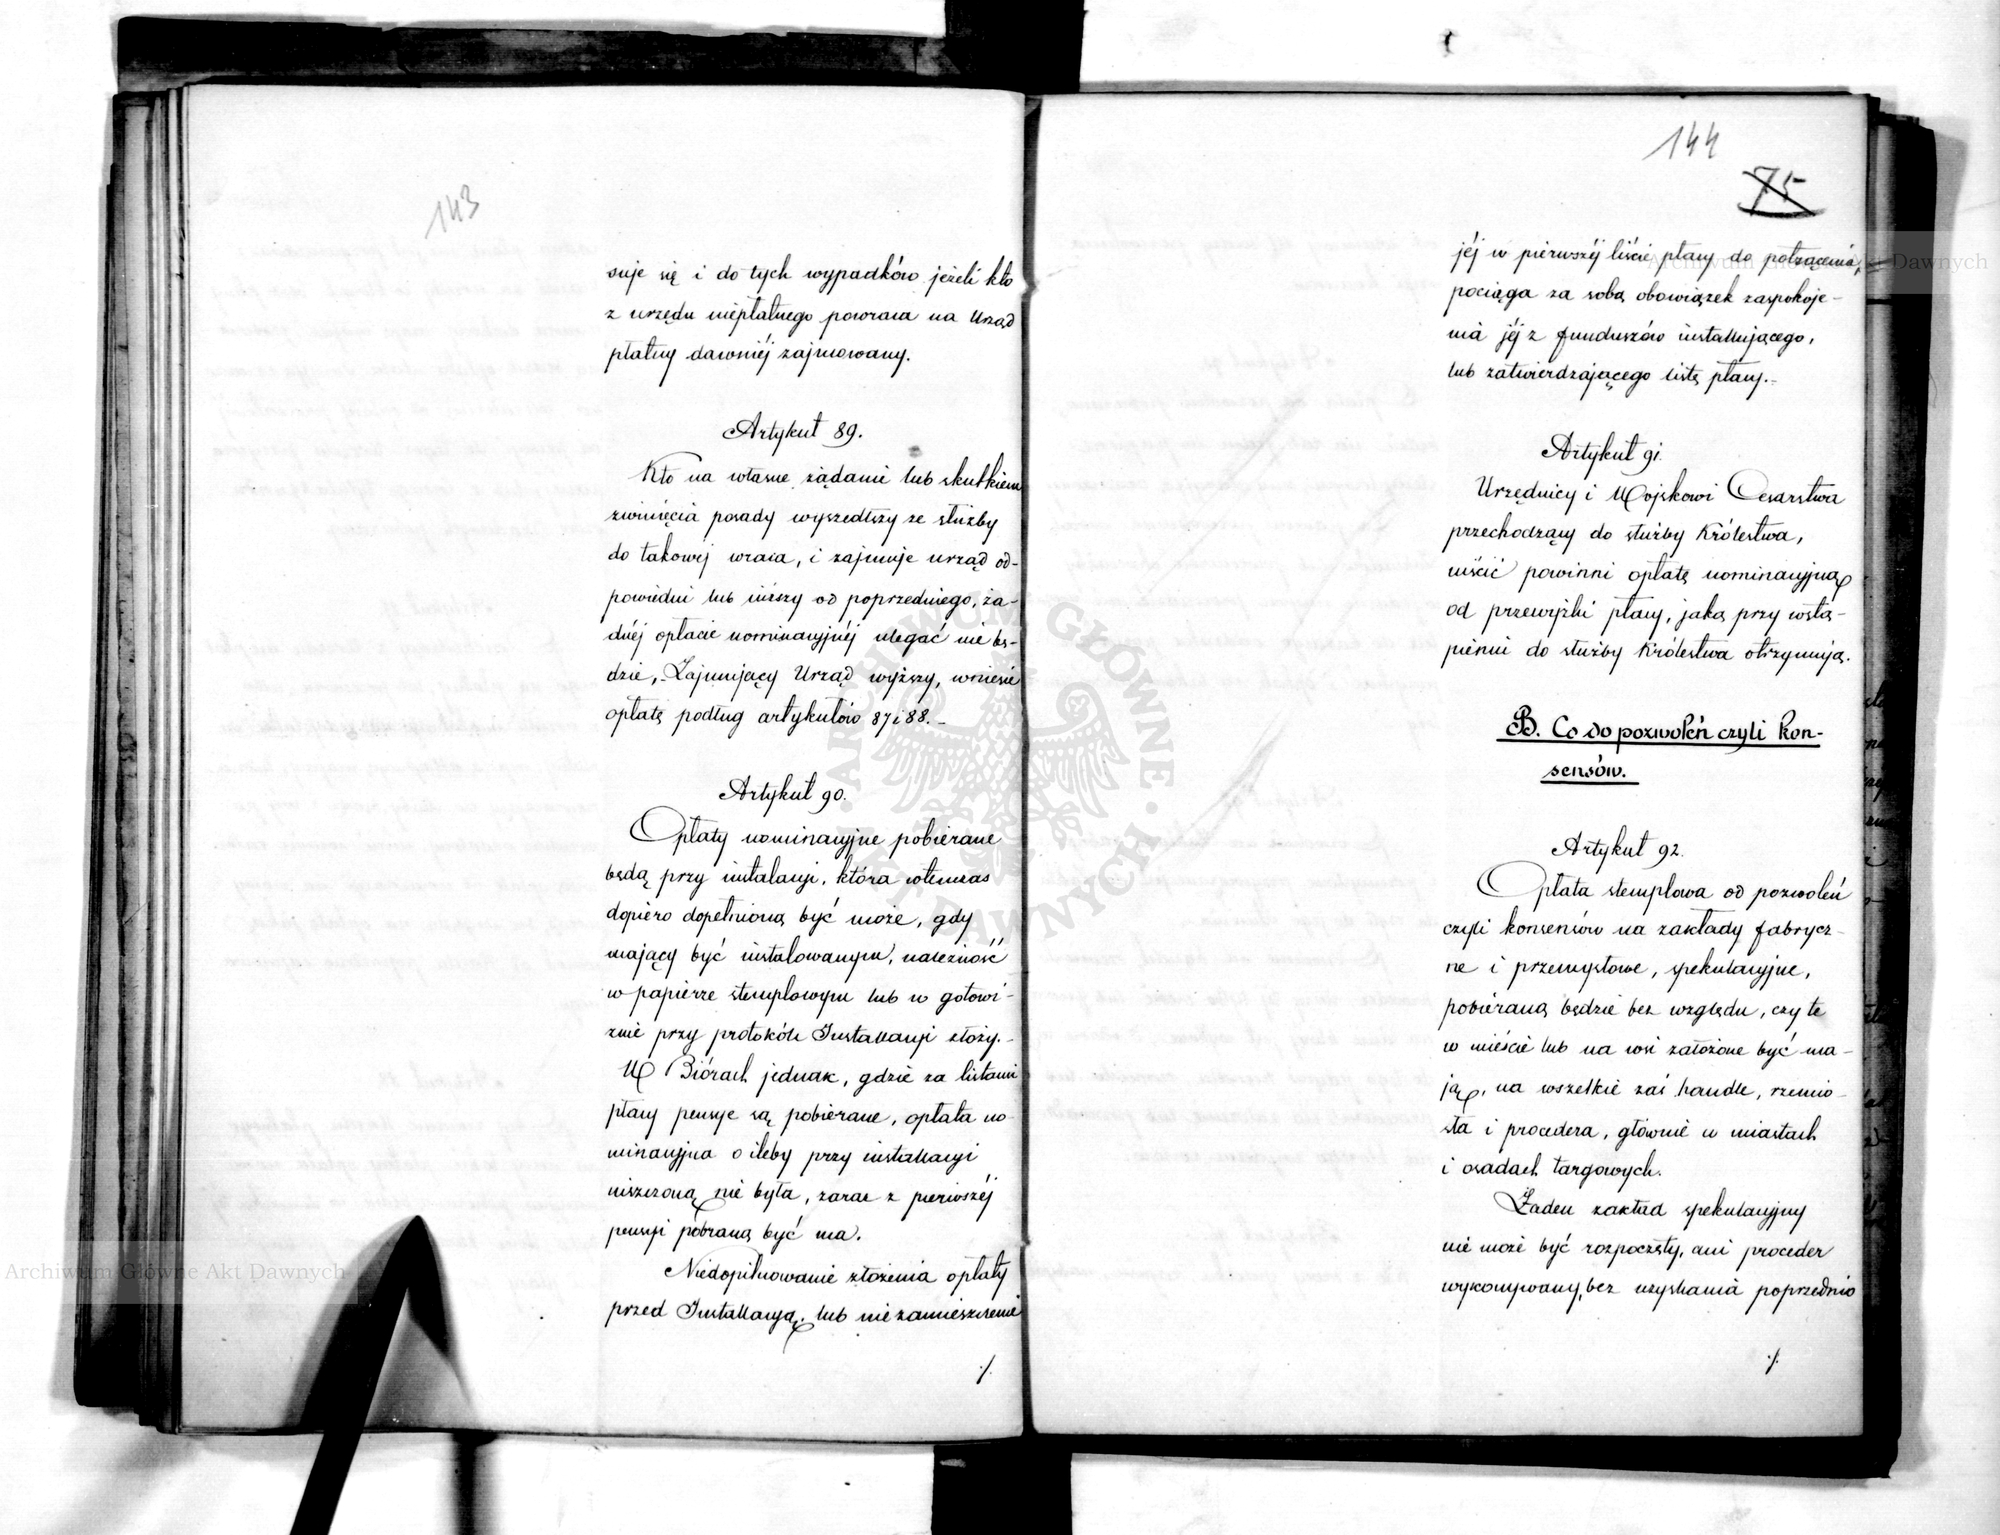 143
suje się i do tych wypadków jeżeli kto
z urzędu niepłatnego powraca na Urząd
płatny dawniéj zajmowany.
Artykuł 89.
Kto na własne żądanie lub skutkiem
zwinięcia posady wyszedłszy ze służby
do takowéj wraca, i zajmuje urząd od-
powiedni lub niższy od poprzedniego, ża-
dnéj opłacie nominacyjnéj ulegać nie bę-
dzie, Zajmujący Urząd wyższy, wniesie
opłatę podług artykułów 87 i 88.-
Artykuł 90.
Opłaty nominacyjne pobierane
będą przy instalacyi, która wtenczas
dopiero dopełnioną być może, gdy
mający być instalowanym, należność
w papierze stemplowym lub w gotowi-
znie przy protokóle Installacyi złoży.-
W Biórach jednak, gdzie za listami
płacy pensye są pobierane, opłata no-
minacyjna o ileby przy installacyi
niszczoną nie była, zaraz z pierwszéj
pensyi pobraną być ma.
Niedopilnowanie złożenia opłaty
przed Installacyą, lub niezamieszczenie
./.
144
75
jéj w pierwszéj liście płacy do potrącenia,
pociąga za sobą obowiązek zaspokoje-
nia jéj z funduszów installującego,
lub zatwierdzającego listę płacy.-
Artykuł 91.
Urzędnicy i Wojskowi Cesarstwa
przechodzący do służby Królestwa,
uiścić powinni opłatę nominacyjną
od przewyżki płacy, jaką przy wstą-
pieniu do służby Królestwa otrzymują.
B. Co do pozwoleń czyli kon-
sensów.
Artykuł 92.
Opłata stemplowa od pozwoleń
czyli konsensów na zakłady fabrycz-
ne i przemysłowe, spekulacyjne,
pobieraną będzie bez względu, czy te
w mieście lub na wsi założone być ma-
ją, na wszelkie zaś handle, rzemio-
sła i procedera, głównie w miastach
i osadach targowych.
Żaden zakład spekulacyjny
nie może być rozpoczęty, ani proceder
wykonywany, bez uzyskania poprzednio
./.
Archiwum Główne Akt Dawnych
Archiwum Główne Akt Dawnych
ARCHIWUM GŁÓWNE AKT DAWNYCH